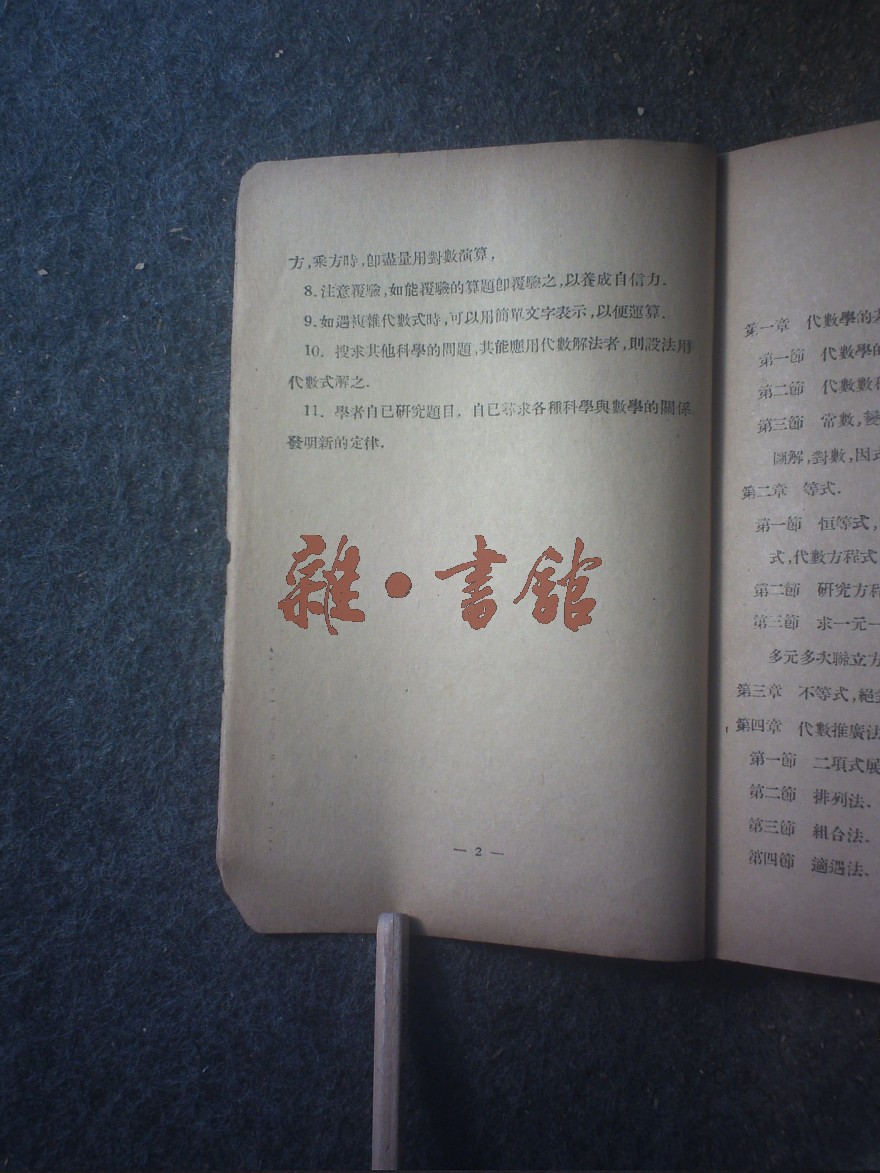 方,乘方時,卽盡量用對數演算,
8.注意覆驗,如能覆驗的算題卽覆驗之,以養成自信力.
9.如遇複雜代數式時,可以用簡單文字表示,以便運算.
10. 搜求其他科學的問題,其能應用代數解法者,則設法用
代數式解之.
11. 學者自已研究題目, 自已尋求各種科學與數學的關係
發明新的定律.
雜·書館
— 2 —
第一章 代數學的
第一節 代數學的
第二節 代數數
第三節 常數,變
圖解,對數,因式
第二章 等式.
第一節 恒等式,
式,代數方程式
第二節 研究方程
第三節 求一元一
多元多次聯立方
第三章 不等式,絕對
第四章 代數推廣法
第一節 二項式展
第二節 排列法、
第三節 組合法.
第四節 適遇法、